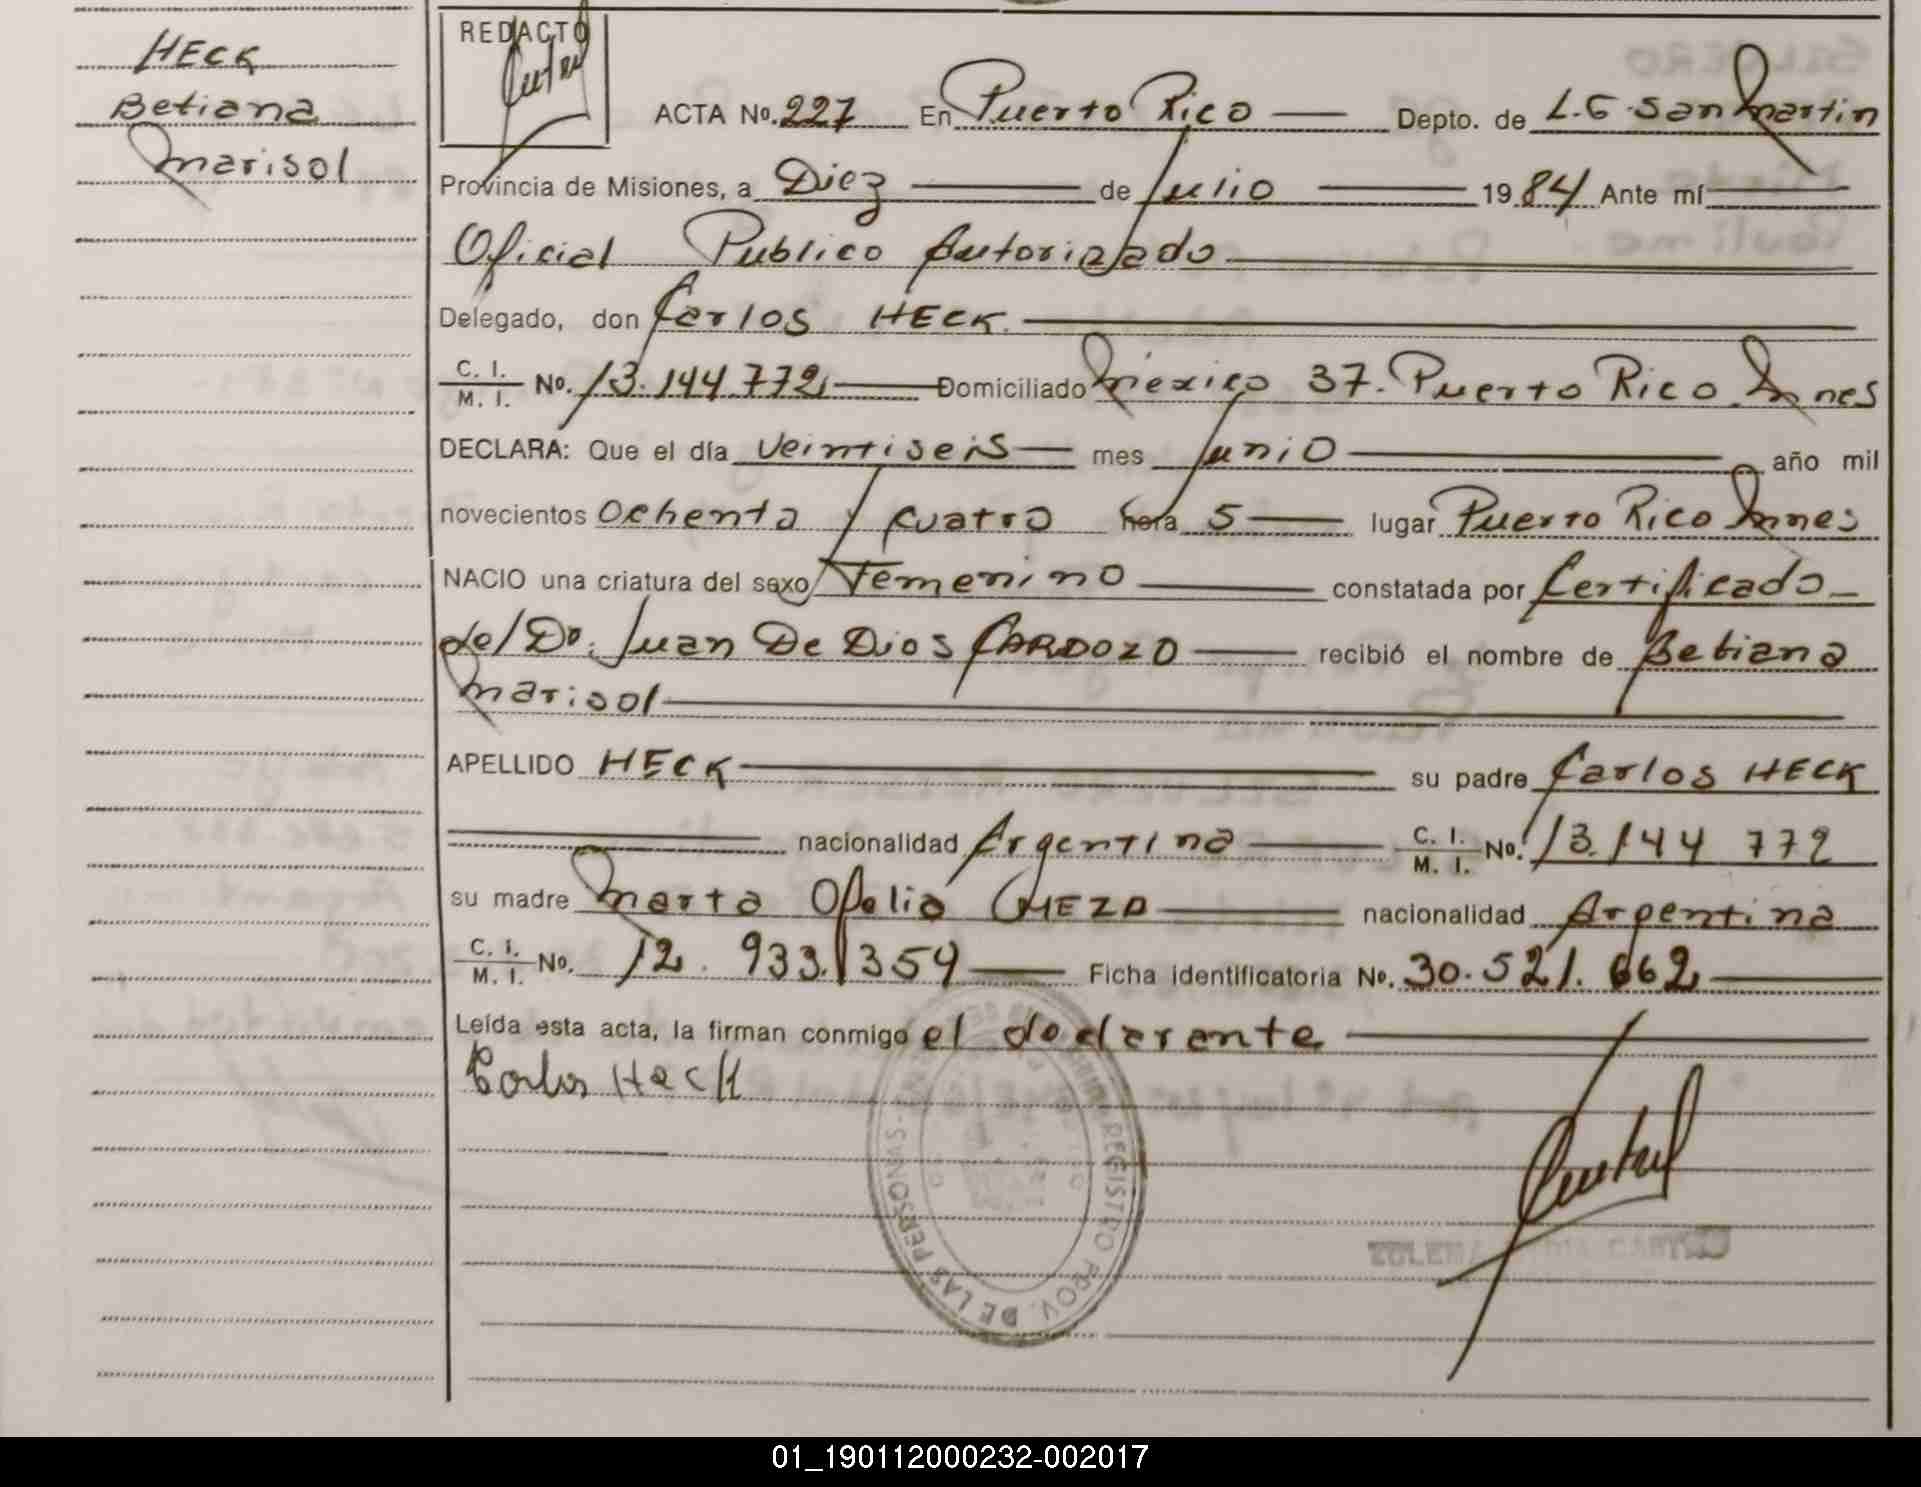 HECK
Betiana
Marisol
REDACTO
ACTA No. 227 En Puerto Rico Depto. de L.G. San Martin
Provincia de Misiones, a Diez de Julio 1984 Ante mí
Oficial Publico Autorizado
Delegado, don Carlos HECK.
C. I. / M. I. No. 13.144.772 Domiciliado México 37. Puerto Rico Mnes
DECLARA: Que el día veintiseis mes Junio año mil
novecientos Ochenta y cuatro hora 5 lugar Puerto Rico Mnes
NACIO una criatura del sexo Femenino constatada por Certificado
del Dr. Juan De Dios CARDOZO recibió el nombre de Betiana
Marisol
APELLIDO HECK su padre Carlos HECK
nacionalidad Argentina C. I. / M. I. No. 13.144 772
su madre Marta Ofelia nacionalidad Argentina
C. I. / M. I. No. 12.933.354 Ficha identificatoria No. 30.521.662
Leída esta acta, la firman conmigo el declarante
Carlos Heck
REGISTRO PROV. DE LAS PERSONAS
01_190112000232-002017